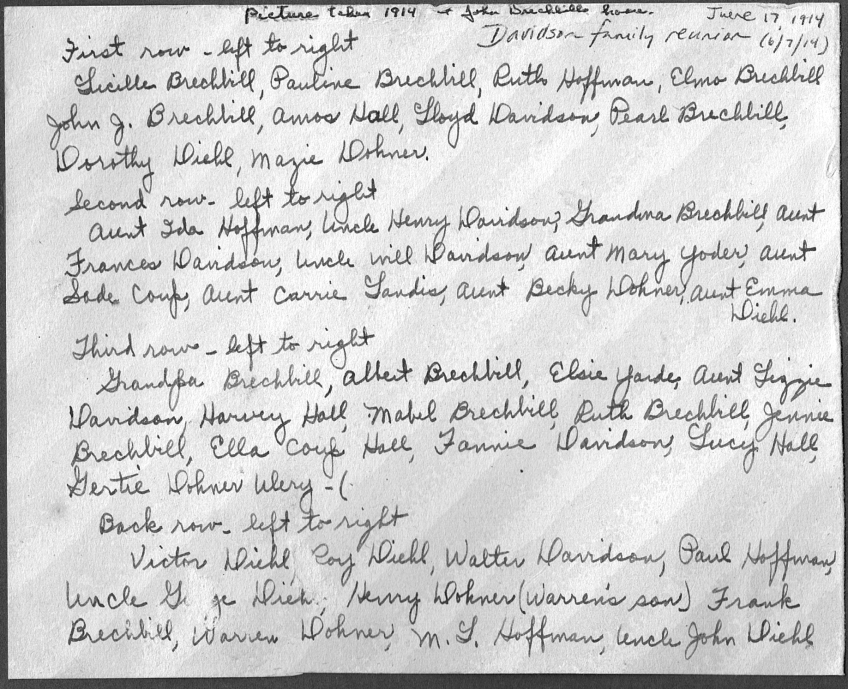 Picture taken 1914 - John Brechbills home.
June 17, 1914
Davidson family reunion (6/7/14)
First row - left to right
Lucille Brechbill, Pauline Brechbill, Ruth Hoffman, Elmo Brechbill
John J. Brechbill, Amos Hall, Lloyd Davidson, Pearl Brechbill,
Dorothy Diehl, Mazie Dohner.
Second row - left to right
Aunt Ida Hoffman, Uncle Henry Davidson, Grandma Brechbill, Aunt
Frances Davidson, Uncle Will Davidson, Aunt Mary Yoder, Aunt
Sade Coup, Aunt Carrie Landis, Aunt Becky Dohner, Aunt Emma
Diehl.
Third row - left to right
Grandpa Brechbill, Albert Brechbill, Elsie Aunt Lizzie
Davidson, Harvey Hall, Mabel Brechbill, Ruth Brechbill, Jennie
Brechbill, Ella Coup Hall, Fannie Davidson, Lucy Hall,
Gertie Dohner Wery - (
Back row - left to right
Victor Diehl, Roy Diehl, Walter Davidson, Paul Hoffman,
Uncle G ge Dieh , Henry Dohner (Warren's son) Frank
Brechbill, Warren Dohner, M. L. Hoffman, Uncle John Diehl